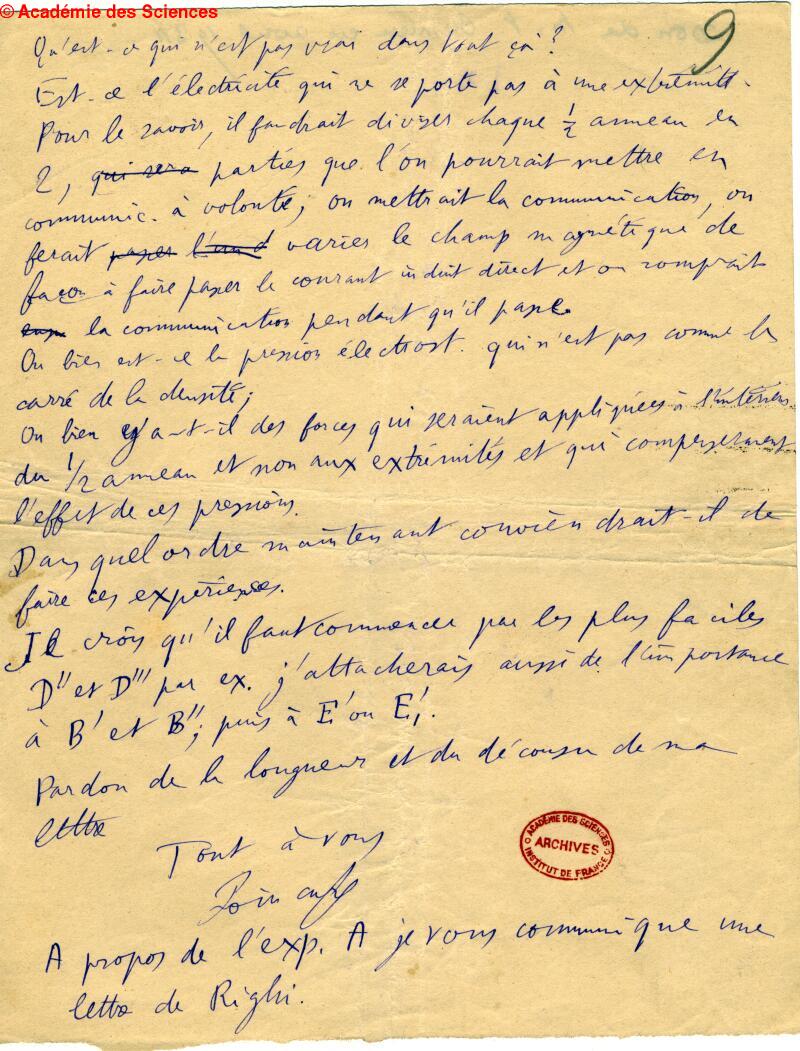 © Académie des Sciences
9
Qu'est-ce qui n'est pas vrai dans tout çà?
Est-ce l'électricité qui ne se porte pas à une extrémité.
Pour le savoir, il faudrait diviser chaque ½ anneau en
2, qui sera parties que l'on pourrait mettre en
communic. à volonté; on mettrait la communication, on
ferait passer varier le champ magnétique de
façon à faire passer le courant induit direct et on romprait
la communication pendant qu'il passe.
Ou bien est-ce la pression électrost. qui n'est pas comme le
carré de la densité;
Ou bien y a-t-il des forces qui seraient appliquées à l'intérieur
du 1/2 anneau et non aux extrémités et qui compenseraient
l'effet de ces pressions.
Dans quel ordre maintenant conviendrait-il de
faire ces expériences.
Je crois qu'il faut commencer par les plus faciles
D'' et D''' par ex. j'attacherais aussi de l'importance
à B' et B''; puis à E' ou E'₁.
Pardon de la longueur et du décousu de ma
lettre
Tout à vous
Poincaré
A propos de l'exp. A je vous communique une
lettre de Righi.
ACADÉMIE DES SCIENCES
ARCHIVES
INSTITUT DE FRANCE